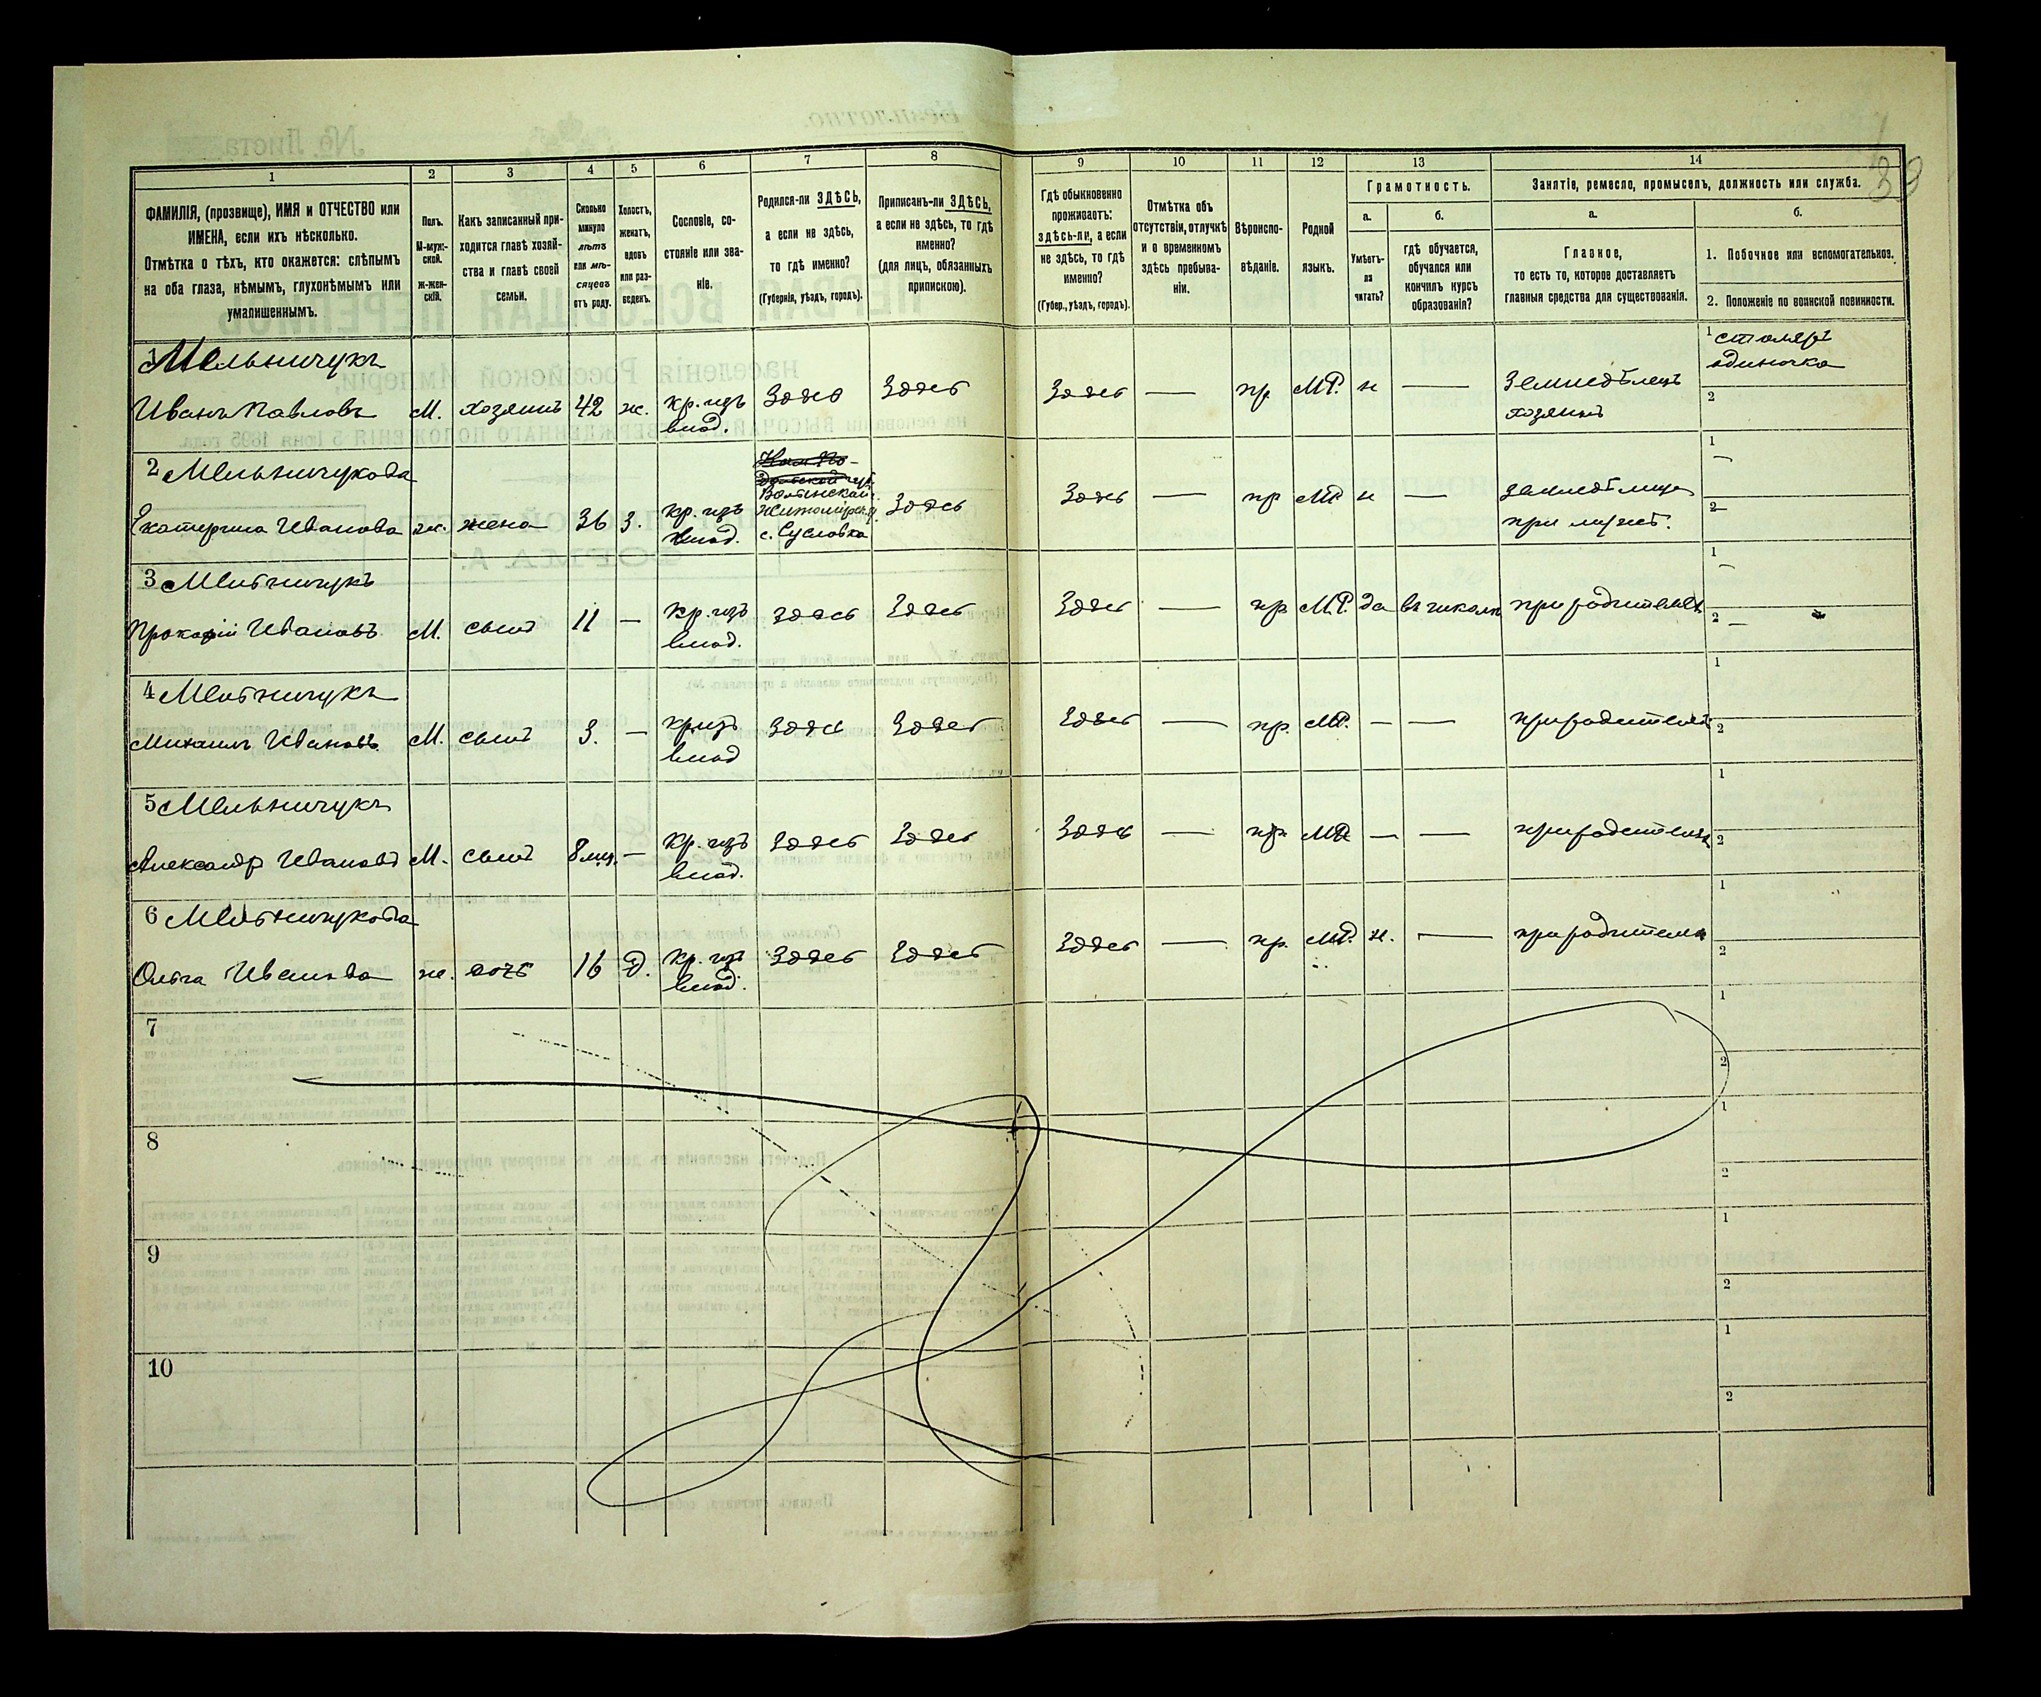 39
1 2 3 4 5 6 7 8 9 10 11 12 13 14
ФАМИЛІЯ, (прозвище), ИМЯ и ОТЧЕСТВО или
ИМЕНА, если ихъ нѣсколько.
Отмѣтка о тѣхъ, кто окажется: слѣпымъ
на оба глаза, нѣмымъ, глухонѣмымъ или
умалишеннымъ.
Полъ.
М-муж-
ской.
ж-жен-
скій.
Какъ записанный при-
ходится главѣ хозяй-
ства и главѣ своей
семьи.
Сколько
минуло
лѣтъ
или мѣ-
сяцевъ
отъ роду.
Холостъ,
женатъ,
вдовъ
или раз-
веденъ.
Сословіе, со-
стояніе или зва-
ніе.
Родился-ли ЗДѢСЬ,
а если не здѣсь,
то гдѣ именно?
(Губернія, уѣздъ, городъ).
Приписанъ-ли ЗДѢСЬ,
а если не здѣсь, то гдѣ
именно?
(для лицъ, обязанныхъ
припискою).
Гдѣ обыкновенно
проживаетъ:
здѣсь-ли, а если
не здѣсь, то гдѣ
именно?
(Губер., уѣздъ, городъ).
Отмѣтка объ
отсутствіи, отлучкѣ
и о временномъ
здѣсь пребыва-
ніи.
Вѣроиспо-
вѣданіе.
Родной
языкъ.
Грамотность.
а.
Умѣетъ-
ли
читать?
б.
гдѣ обучается,
обучался или
кончилъ курсъ
образованія?
Занятіе, ремесло, промыселъ, должность или служба.
а.
Главное,
то есть то, которое доставляетъ
главныя средства для существованія.
б.
1. Побочное или вспомогательное.
2. Положеніе по воинской повинности.
1 Мельничукъ
Иванъ Павловъ М. хозяинъ 42 ж. кр. изъ Здѣсь Здѣсь Здѣсь — пр М.Р. н — Земледѣлецъ
влад. хозяинъ
1 столяръ
одиночка
2
2 Мельничукова
Волынской г.
Житомірск. у.
с. Сусловка
Екатерина Иванова ж. жена 36 З. кр. изъ Здѣсь Здѣсь — пр М.Р. н — земледѣлица
влад. при мужѣ.
1 —
2 —
3 Мельничукъ
Прокофій Ивановъ М. сынъ 11 — кр. изъ здѣсь Здѣсь Здѣсь — пр М.Р. да въ школѣ при родителяхъ
влад.
1 —
2 —
4 Мельничукъ
Михаилъ Ивановъ М. сынъ 3. — кр. изъ Здѣсь Здѣсь Здѣсь — пр. М.Р. — — при родителяхъ
влад
1
2
5 Мельничукъ
Александр Ивановъ М. сынъ 8 мѣс. — Кр. изъ Здѣсь Здѣсь Здѣсь — пр. М.Р. — — при родителяхъ
влад.
1
2
6 Мельничукова
Ольга Иванова ж. дочь 16 Д. Кр. изъ Здѣсь Здѣсь Здѣсь — пр. М.Р. н. — при родителяхъ
влад.
1
2
7
1
2
8
1
2
9
1
2
10
1
2